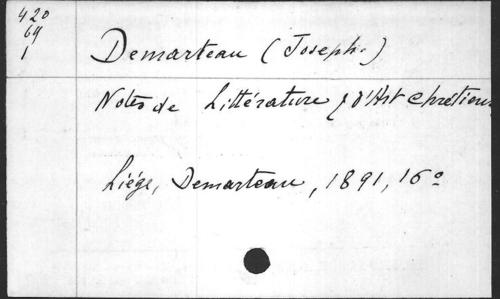 420
64
1
Demarteau (Joseph.)
Notes de Littérature & d'Art chrétiens
Liége, Demarteau, 1891, 16º